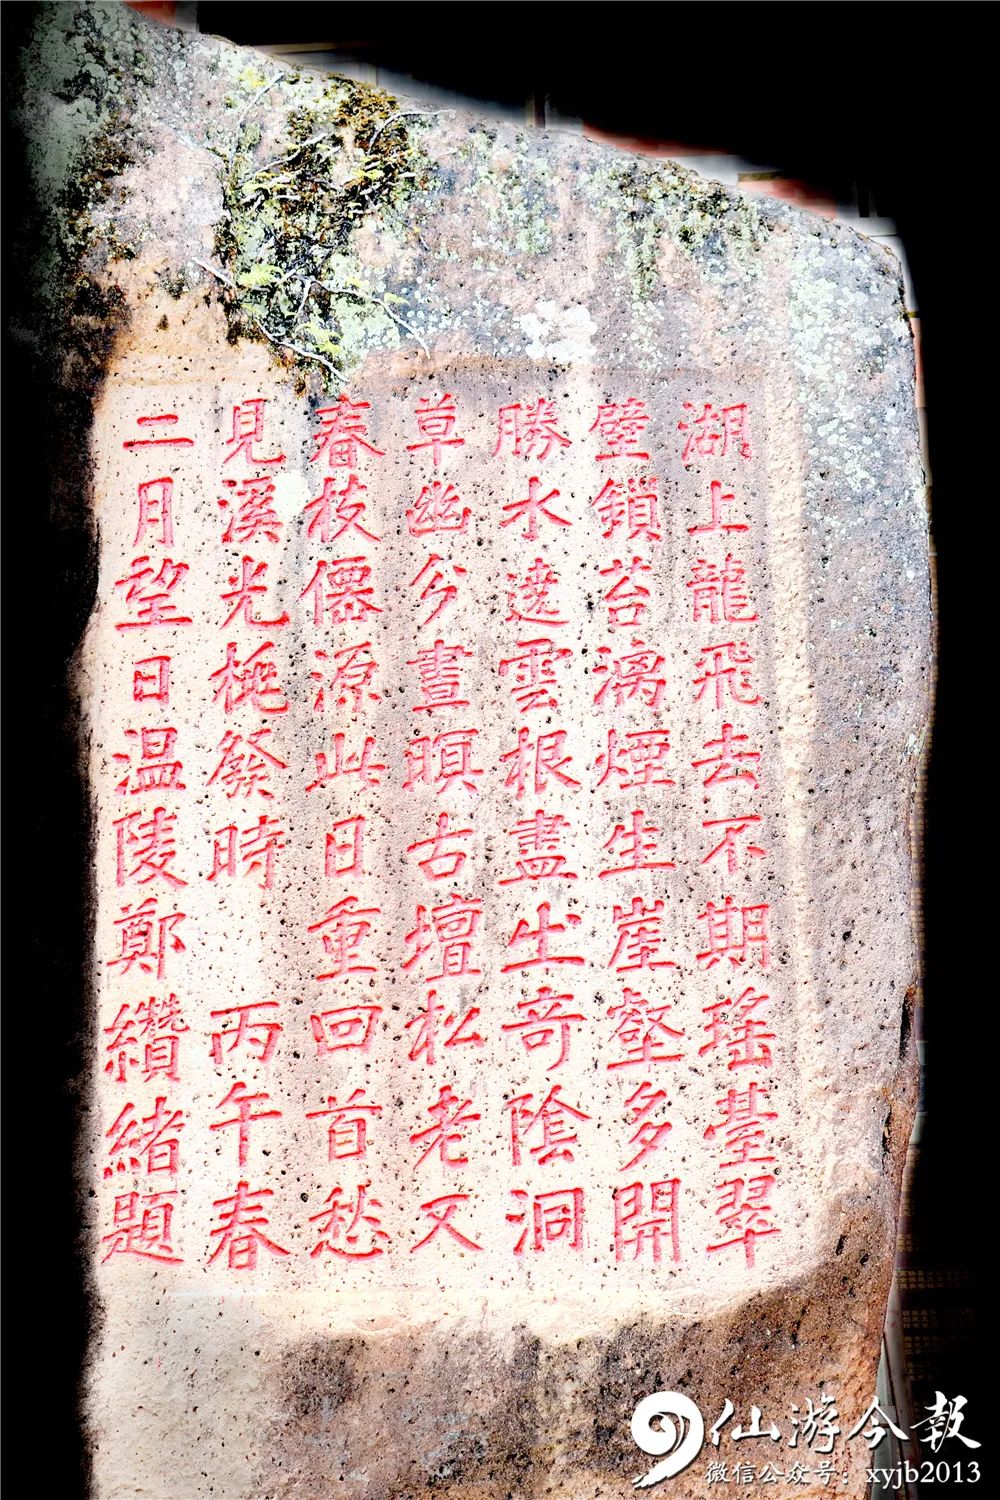 湖上龍飛去不期瑤臺翠
壁鎖苔漓煙生崖壑多開
勝水遶雲根盡出奇陰洞
草幽分晝暝古壇松老又
春枝僊源此日重回首愁
見溪光桃發時 丙午春
二月望日温陵鄭纘緒題
仙游今報
微信公众号：xyjb2013